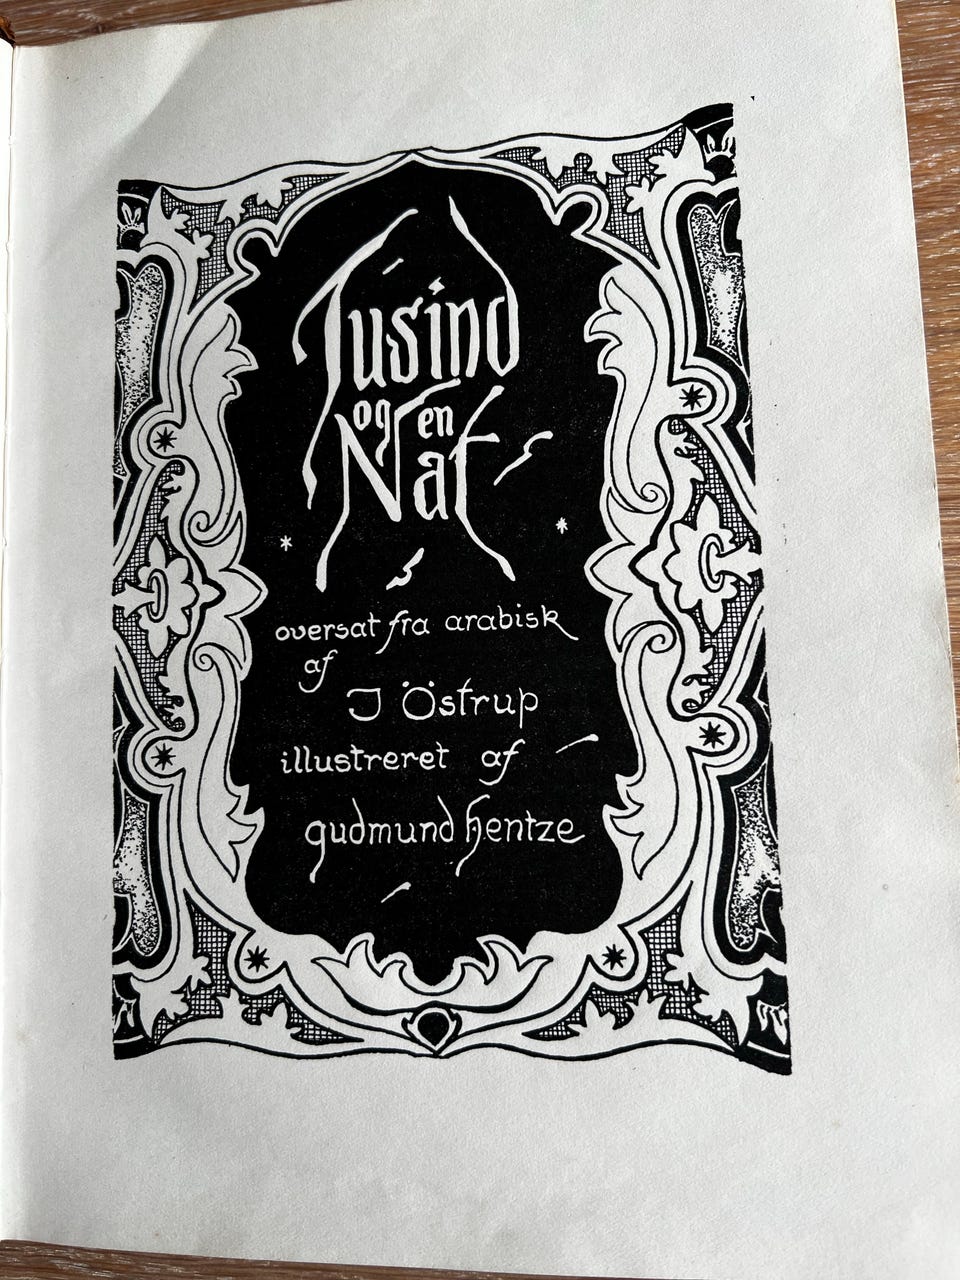 Tusind
og en
Nat
oversat fra arabisk
af
J Östrup
illustreret af
gudmund hentze